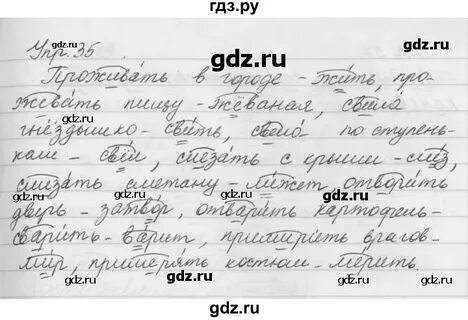 гдз.ру
gdz.ru gdz.ru
Упр. 35
Проживать в городе - жить, про-
жевать пищу - жёваная, свила
gdz.ru gdz.ru
гнёздышко - свить, свела по ступень-
кам - свёл, слезать с крыши - слез,
слизать сметану - лижет, отворить
gdz.ru gdz.ru
дверь - затвор, отварить картофель -
сварить - варит, примирить врагов -
мир, примерять костюм - мерить.
gdz.ru gdz.ru